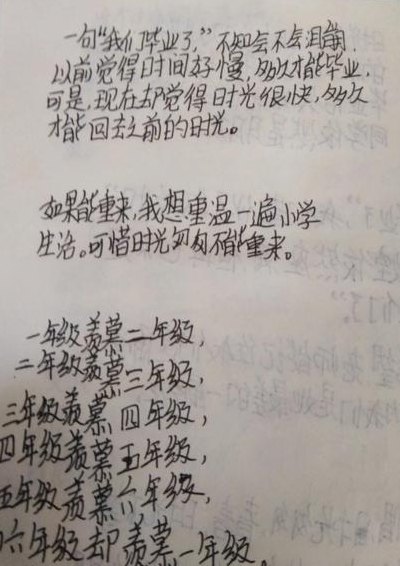 一句“我们毕业了，”不知会不会泪崩.
以前觉得时间好慢，多久才能毕业.
可是，现在却觉得时光很快，多久
才能回去之前的时光。
如果能重来，我想重温一遍小学
生活。可惜时光匆匆不能重来。
一年级羡慕二年级，
二年级羡慕三年级，
三年级羡慕四年级，
四年级羡慕五年级，
五年级羡慕六年级，
六年级却羡慕一年级。